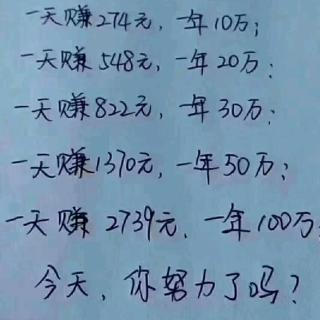 一天赚274元，一年10万；
一天赚548元，一年20万；
一天赚822元，一年30万；
一天赚1370元，一年50万；
一天赚2739元，一年100万；
今天，你努力了吗？